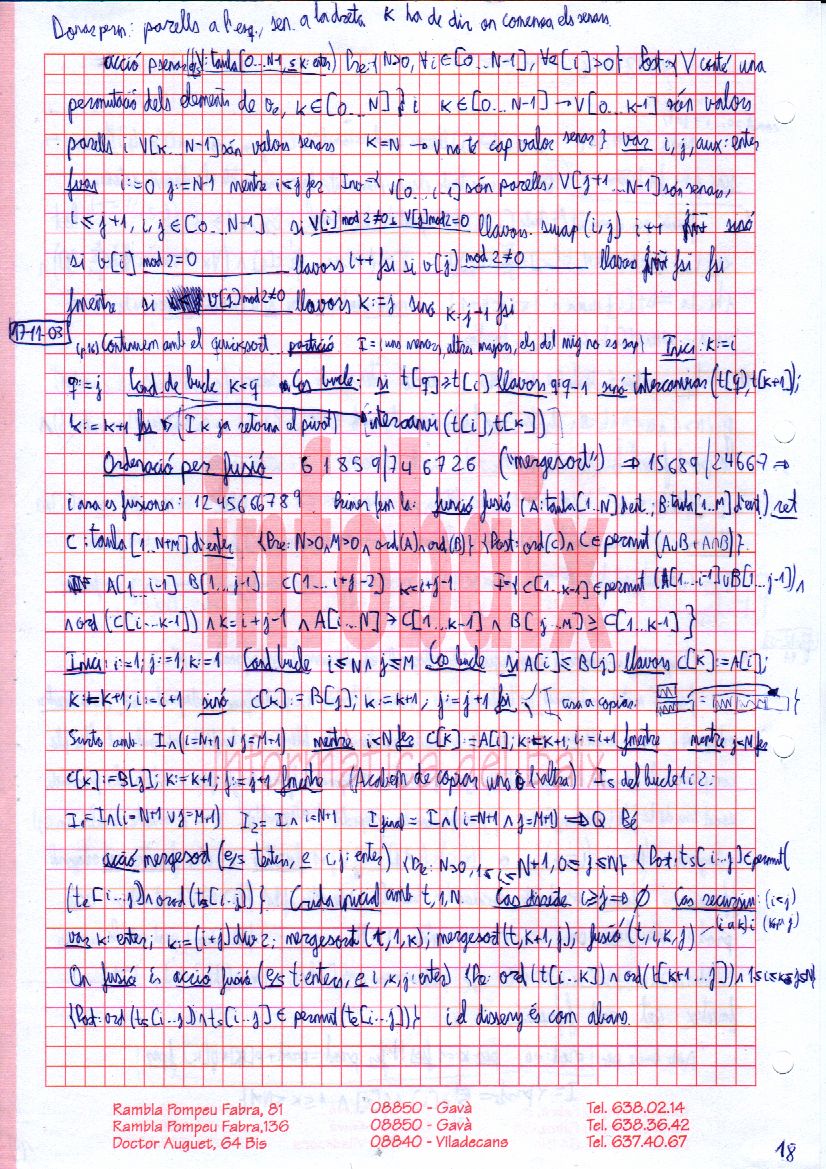 Donar perm.: parells a l'esq., sen. a la dreta. K ha de dir on comencen els senars
acció psenar (e/s V: taula[0...N-1], s k: enter) Pre: {N>0, ∀i∈[0...N-1], ∀e[i]>0} Post: {V conté una
permutació dels elements de ve, k∈[0...N]} i k∈[0...N-1] → V[0...k-1] són valors
parells i V[k...N-1] són valors senars K=N → V no té cap valor senar} var i, j, aux: enter
fvar i:=0 j:=N-1 mentre i≤j fer Inv={V[0...i-1] són parells, V[j+1...N-1] són senars,
i≤j+1, i,j∈[0...N-1] si V[i] mod 2≠0 i V[j] mod 2=0 llavors swap(i,j) i++ sinó
si v[i] mod 2=0 llavors i++ fsi si v[j] mod 2≠0 llavors fsi fsi
fmentre si v[j] mod 2≠0 llavors k:=j sinó k:=j+1 fsi
17-11-03
Continuem amb el quicksort partició I={uns menors, altres majors, els del mig no es sap} Inici: k:=i
q:=j Cond. de bucle k<q Cos bucle: si t[q]≥t[i] llavors q:=q-1 sinó intercanviar(t[q],t[k+1]);
k:=k+1 fsi (I k ja retorna el pivot) intercanvi(t[i],t[k])
Ordenació per fusió 6 1 8 5 9/7 4 6 7 2 6 ("mergesort") ⇒ 15689/24667 ⇒
i ara es fusionen: 1245666789. Primer fem la: funció fusió (A: taula[1..N] d'ent.; B: taula[1..M] d'ent) ret
C: taula[1..N+M] d'enter {Pre: N>0∧M>0∧ord(A)∧ord(B)} {Post: ord(C)∧C∈permut(A∪B+A∩B)}.
A[1...i-1] B[1...j-1] C[1...i+j-2] k=i+j-1 I={C[1...k-1]∈permut(A[1...i-1]∪B[1...j-1])∧
∧ord(C[i...k-1])∧k=i+j-1∧A[i...N]≥C[1...k-1]∧B[j...M]≥C[1...k-1]}
Inici: i:=1; j:=1; k:=1 Cond bucle i≤N∧j≤M Cos bucle si A[i]≤B[j] llavors C[k]:=A[i];
k:=k+1; i:=i+1 sinó C[k]:=B[j]; k:=k+1; j:=j+1 fsi {I ara a copiar.}
Surto amb I∧(i=N+1∨j=M+1) mentre i≤N fer C[k]:=A[i]; k:=k+1; i:=i+1 fmentre mentre j≤M fer
C[k]:=B[j]; k:=k+1; j:=j+1 fmentre (Acabem de copiar una o l'altra) Is del bucle 1 i 2:
I1=I∧(i=N+1∨j=M+1) I2=I∧i=N+1 Ifinal=I∧(i=N+1∧j=M+1) ⇒ Q Bé
acció mergesort (e/s t: enters, e i,j: enter) {Pre: N>0, 1≤i≤N+1, 0≤j≤N} {Post: ts[i...j]∈permut(
(te[i...j])∧ord(ts[i..j])}. Crida inicial amb t,1,N. Cas directe i≥j ⇒ ∅ Cas recursiu: (i<j)
var k: enter; k:=(i+j) div 2; mergesort(t,1,k); mergesort(t,k+1,j); fusió(t,i,k,j) (i a k) i (k+1 a j)
On fusió és acció fusió (e/s t: enters, e i,k,j: enter) {Pre: ord(t[i...k])∧ord(t[k+1...j])∧1≤i≤k≤j≤N}
{Post: ord(ts[i...j])∧ts[i...j]∈permut(te[i...j])} i el disseny és com abans.
infobaix
informàtica del baix
Rambla Pompeu Fabra, 81 08850 - Gavà Tel. 638.02.14
Rambla Pompeu Fabra,136 08850 - Gavà Tel. 638.36.42
Doctor Auguet, 64 Bis 08840 - Viladecans Tel. 637.40.67
18